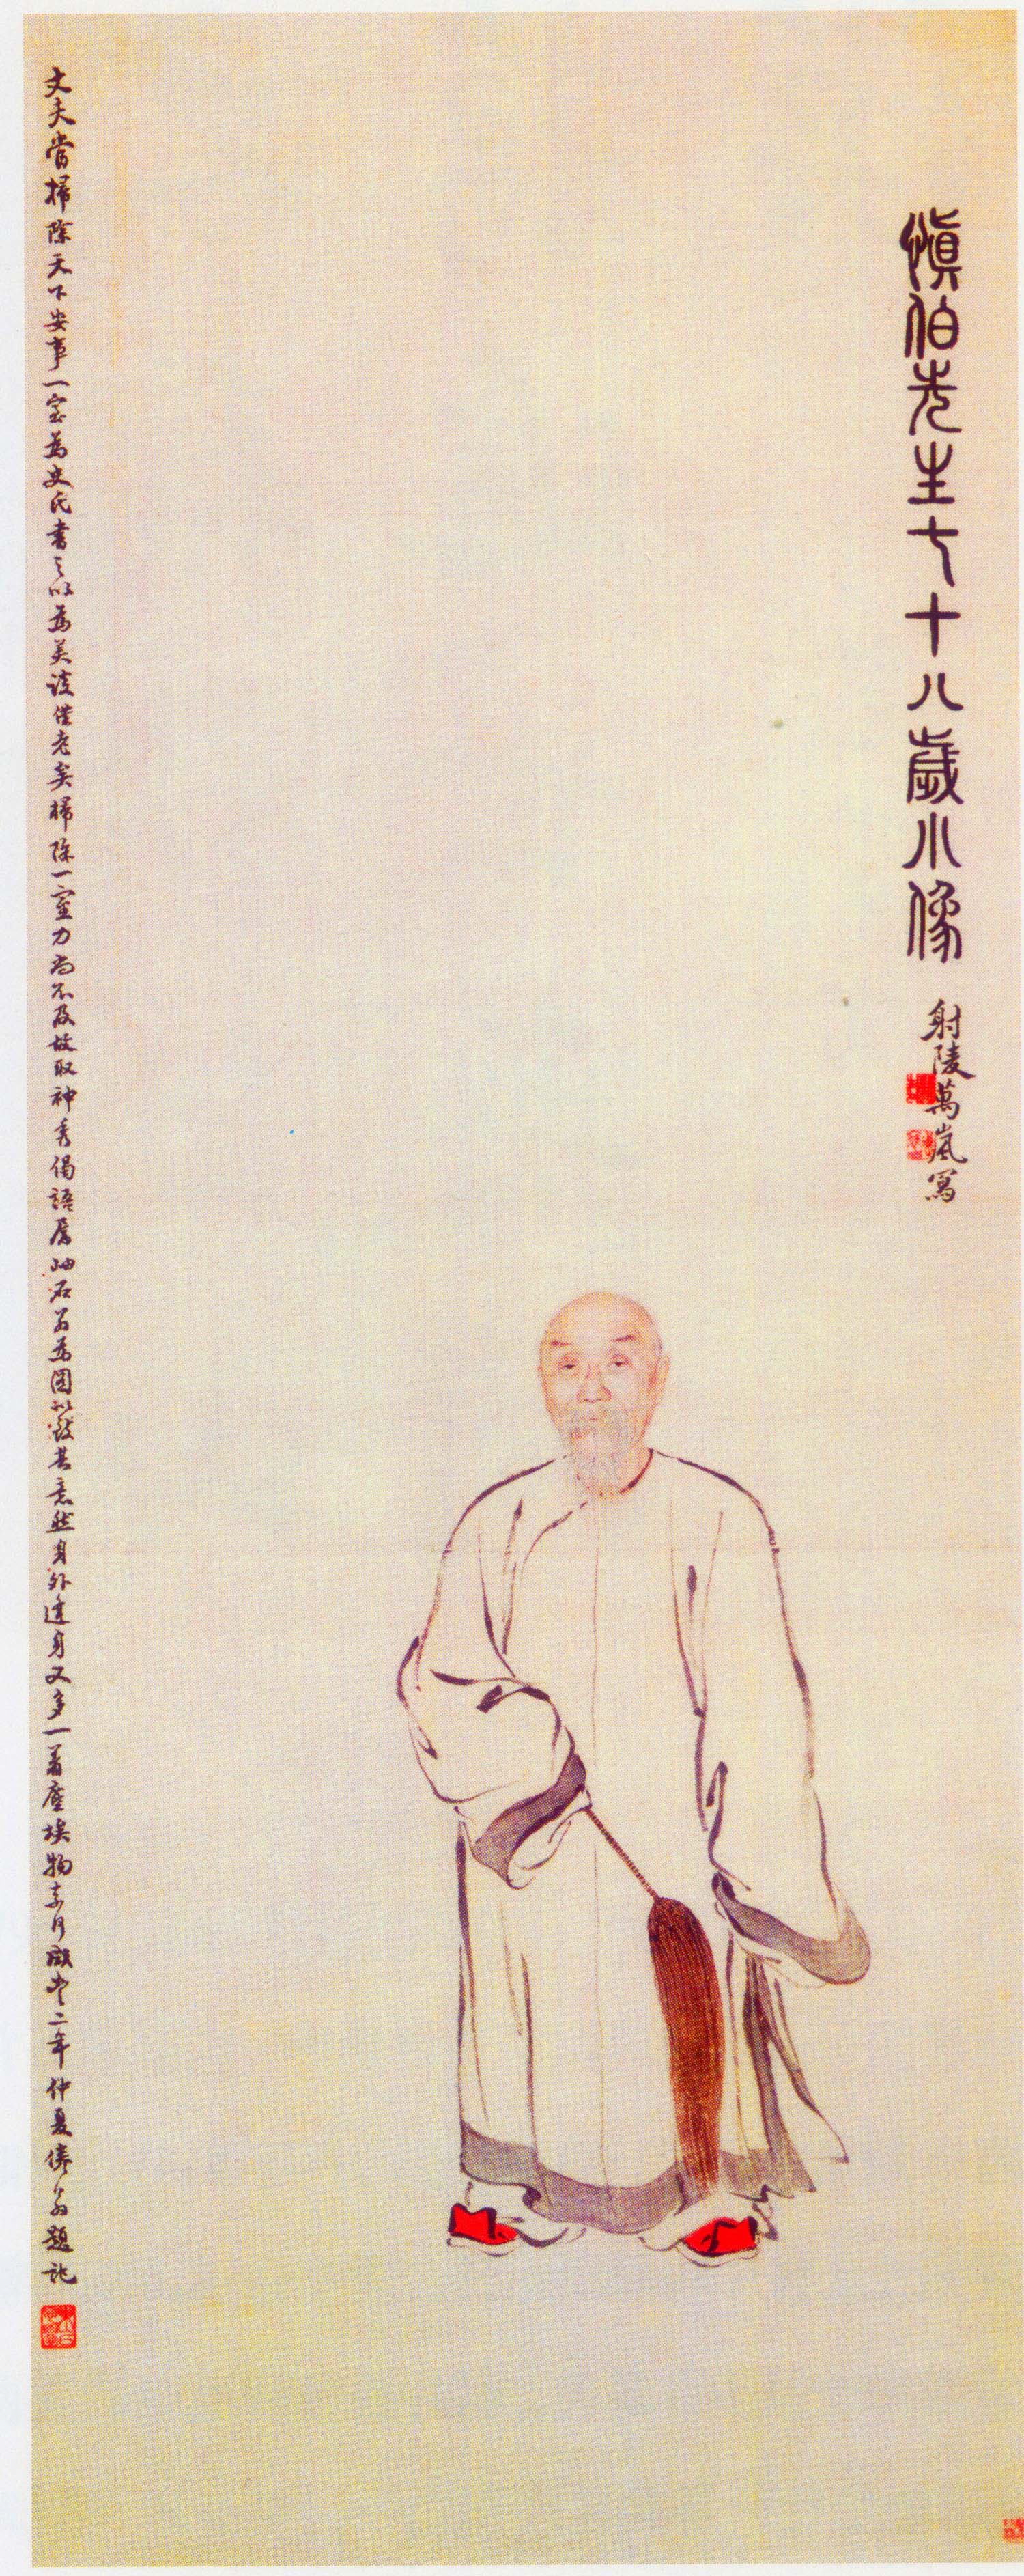 慎伯先生七十八歲小像
射陵萬嵐寫
丈夫當掃除天下安事一室為史氏書之以為美談僕老矣掃除一室力尚不及故取神秀偈語屬岫石翁為圖以致其意然身外遺身又多一著塵埃物矣咸豐二年仲夏倦翁題記